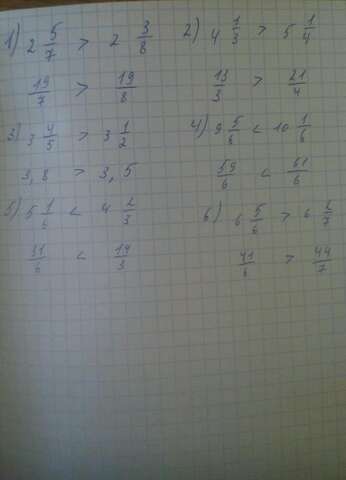 1) 2 5/7 > 2 3/8
19/7 > 19/8
2) 4 1/3 > 5 1/4
13/3 > 21/4
3) 3 4/5 > 3 1/2
3,8 > 3,5
4) 9 5/6 < 10 1/6
59/6 < 61/6
5) 5 1/6 < 4 2/3
31/6 < 14/3
6) 6 5/6 > 6 2/7
41/6 > 44/7